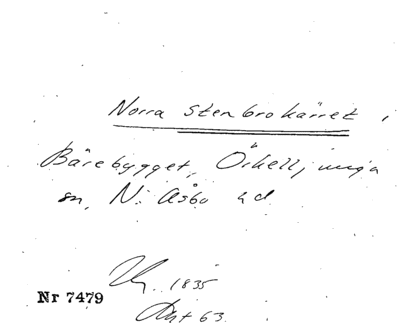 Norra stenbrokärret i
Bårebygget, Örkelljunga
sn, N. Åsbo hd
1835
Nr 7479
Akt 63.